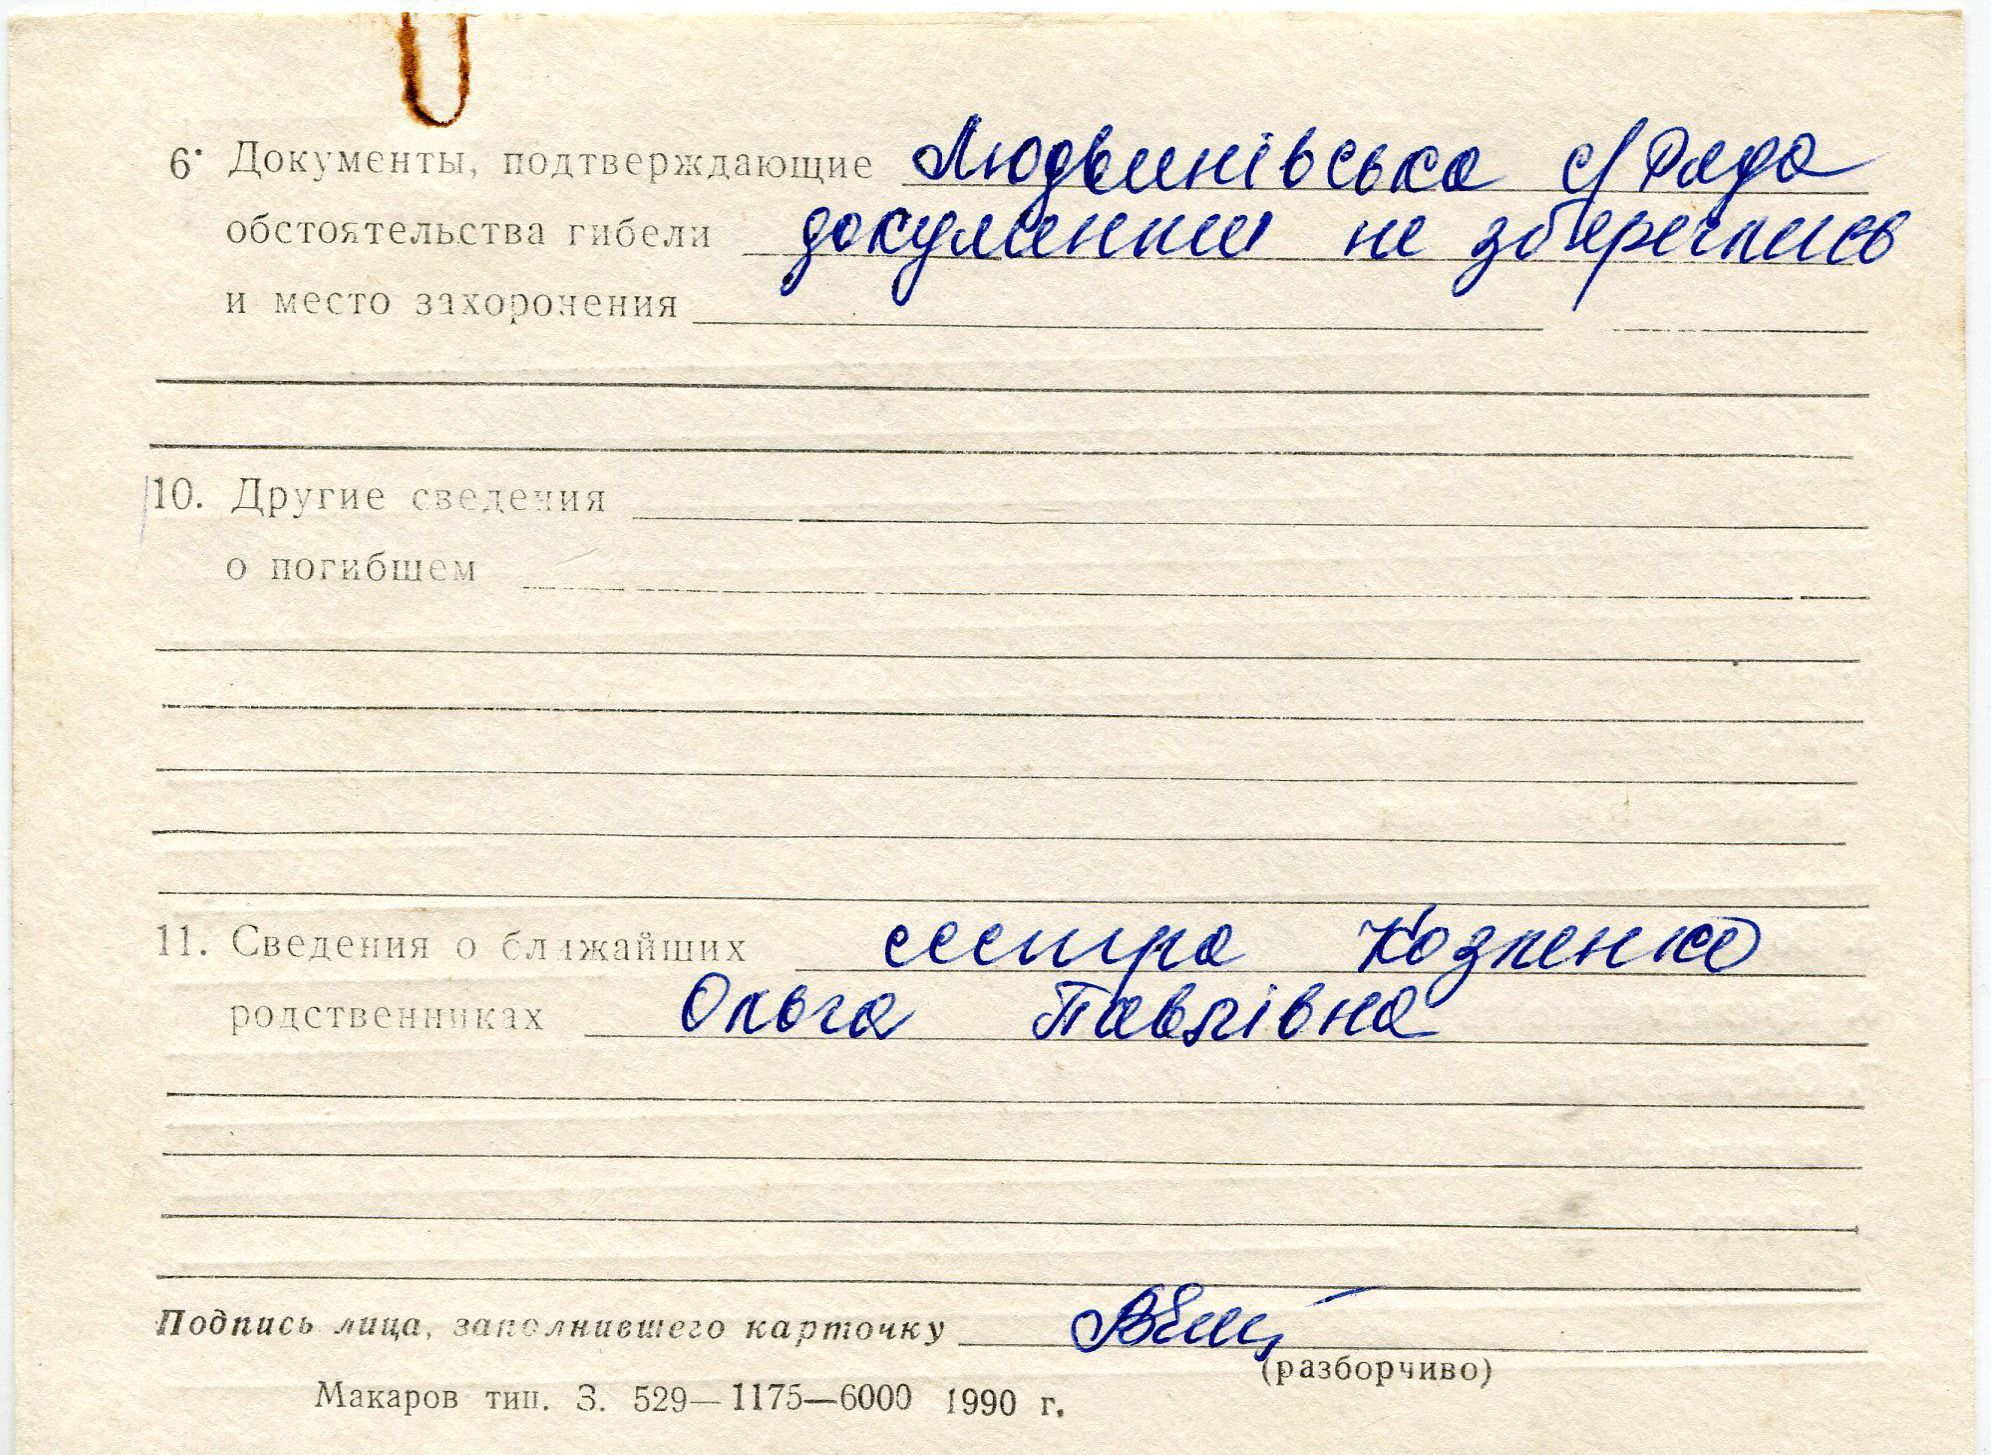 6. Документы, подтверждающие Людвинівська с/Рада
обстоятельства гибели документи не збереглись
и место захоронения
10. Другие сведения
о погибшем
11. Сведения о ближайших сестра Козленко
родственниках Ольга Павлівна
Подпись лица, заполнившего карточку
(разборчиво)
Макаров тип. З. 529—1175—6000 1990 г.